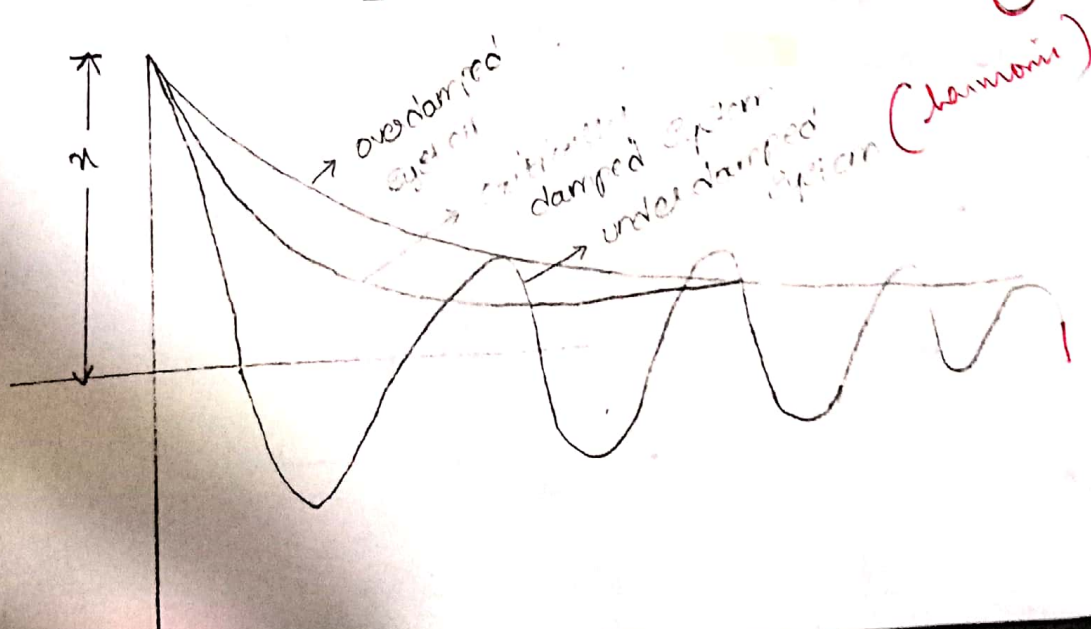 x
overdamped
system
critically
damped system
underdamped
system
(harmonic)